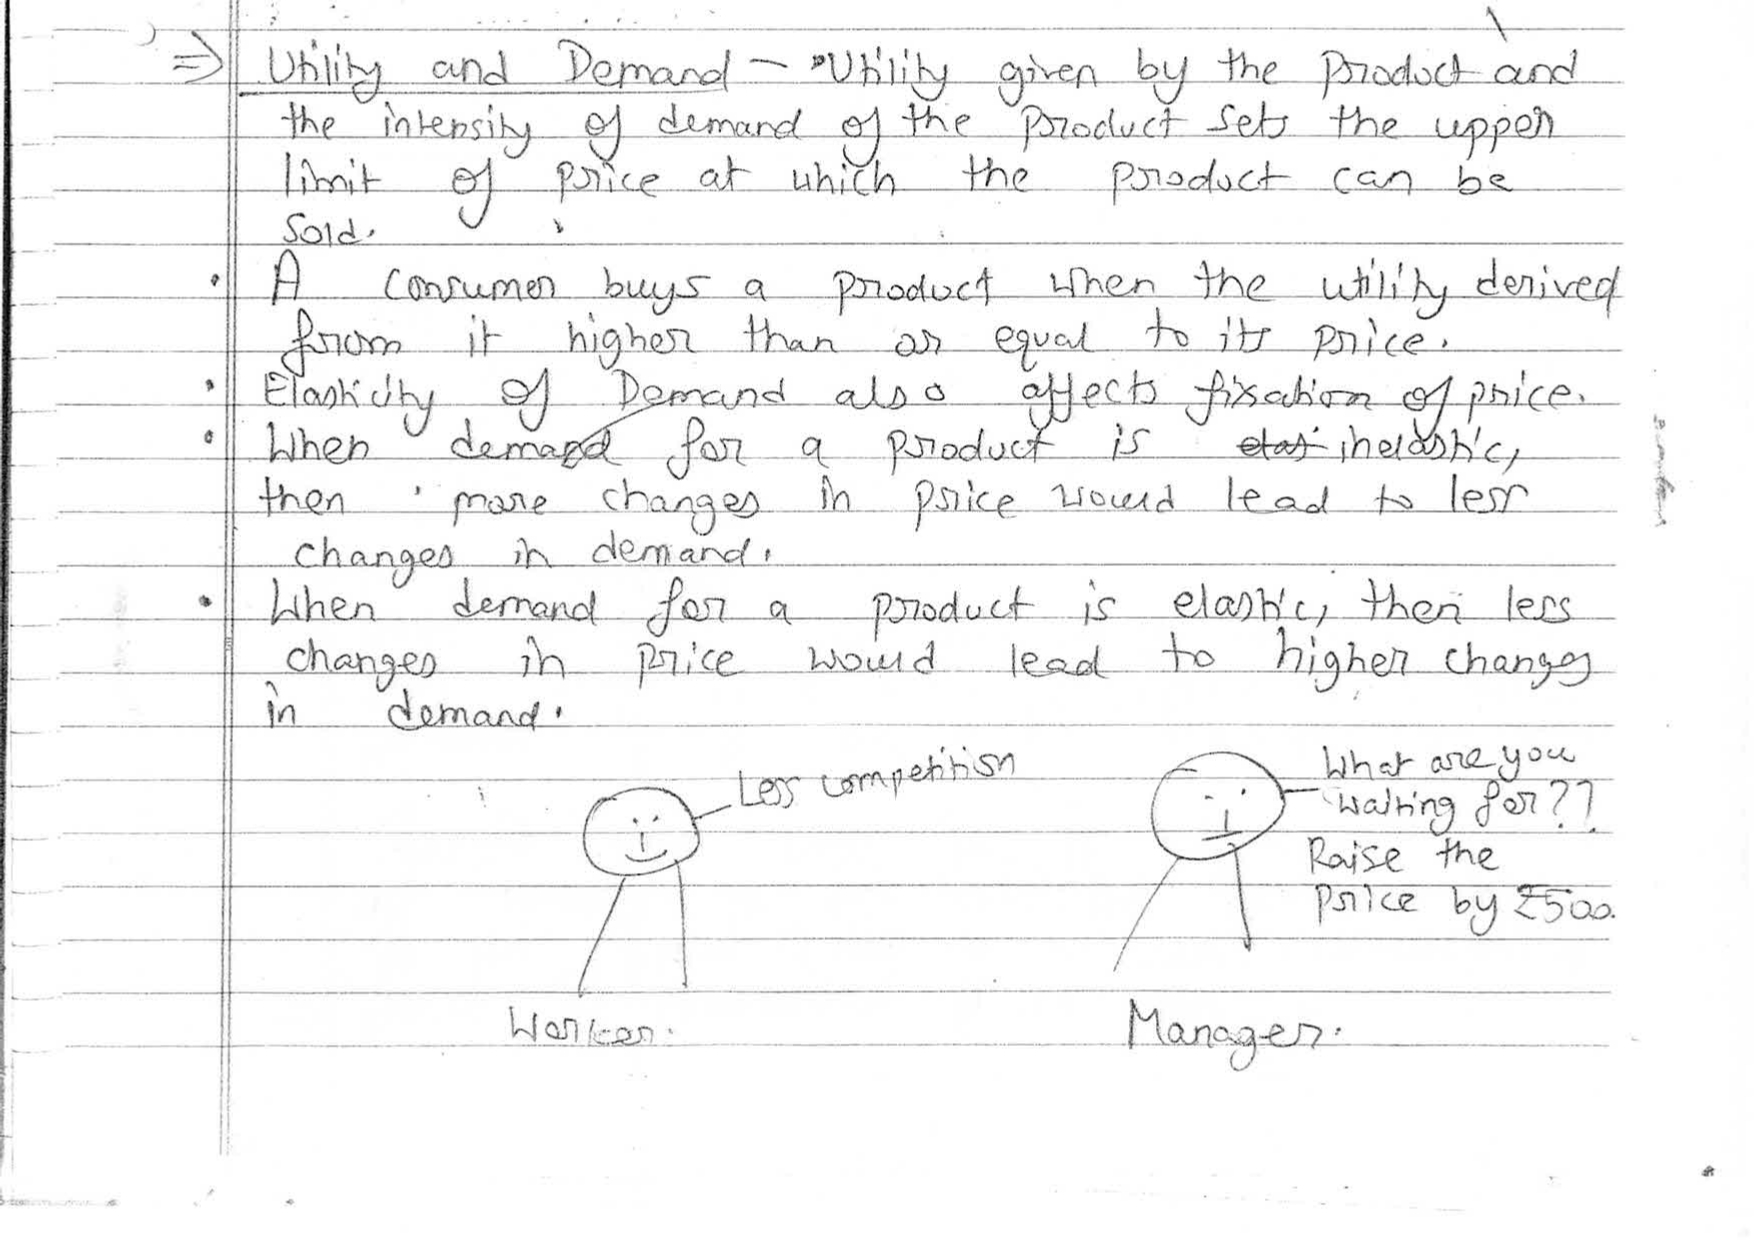 ⇒ Utility and Demand — Utility given by the product and
the intensity of demand of the product sets the upper
limit of price at which the product can be
sold.
• A consumer buys a product when the utility derived
from it higher than or equal to its price.
• Elasticity of Demand also affects fixation of price.
• When demand for a product is elas inelastic,
then more changes in price would lead to less
changes in demand.
• When demand for a product is elastic, then less
changes in price would lead to higher changes
in demand.
Less competition
What are you
waiting for??
Raise the
price by ₹500.
Worker.
Manager.